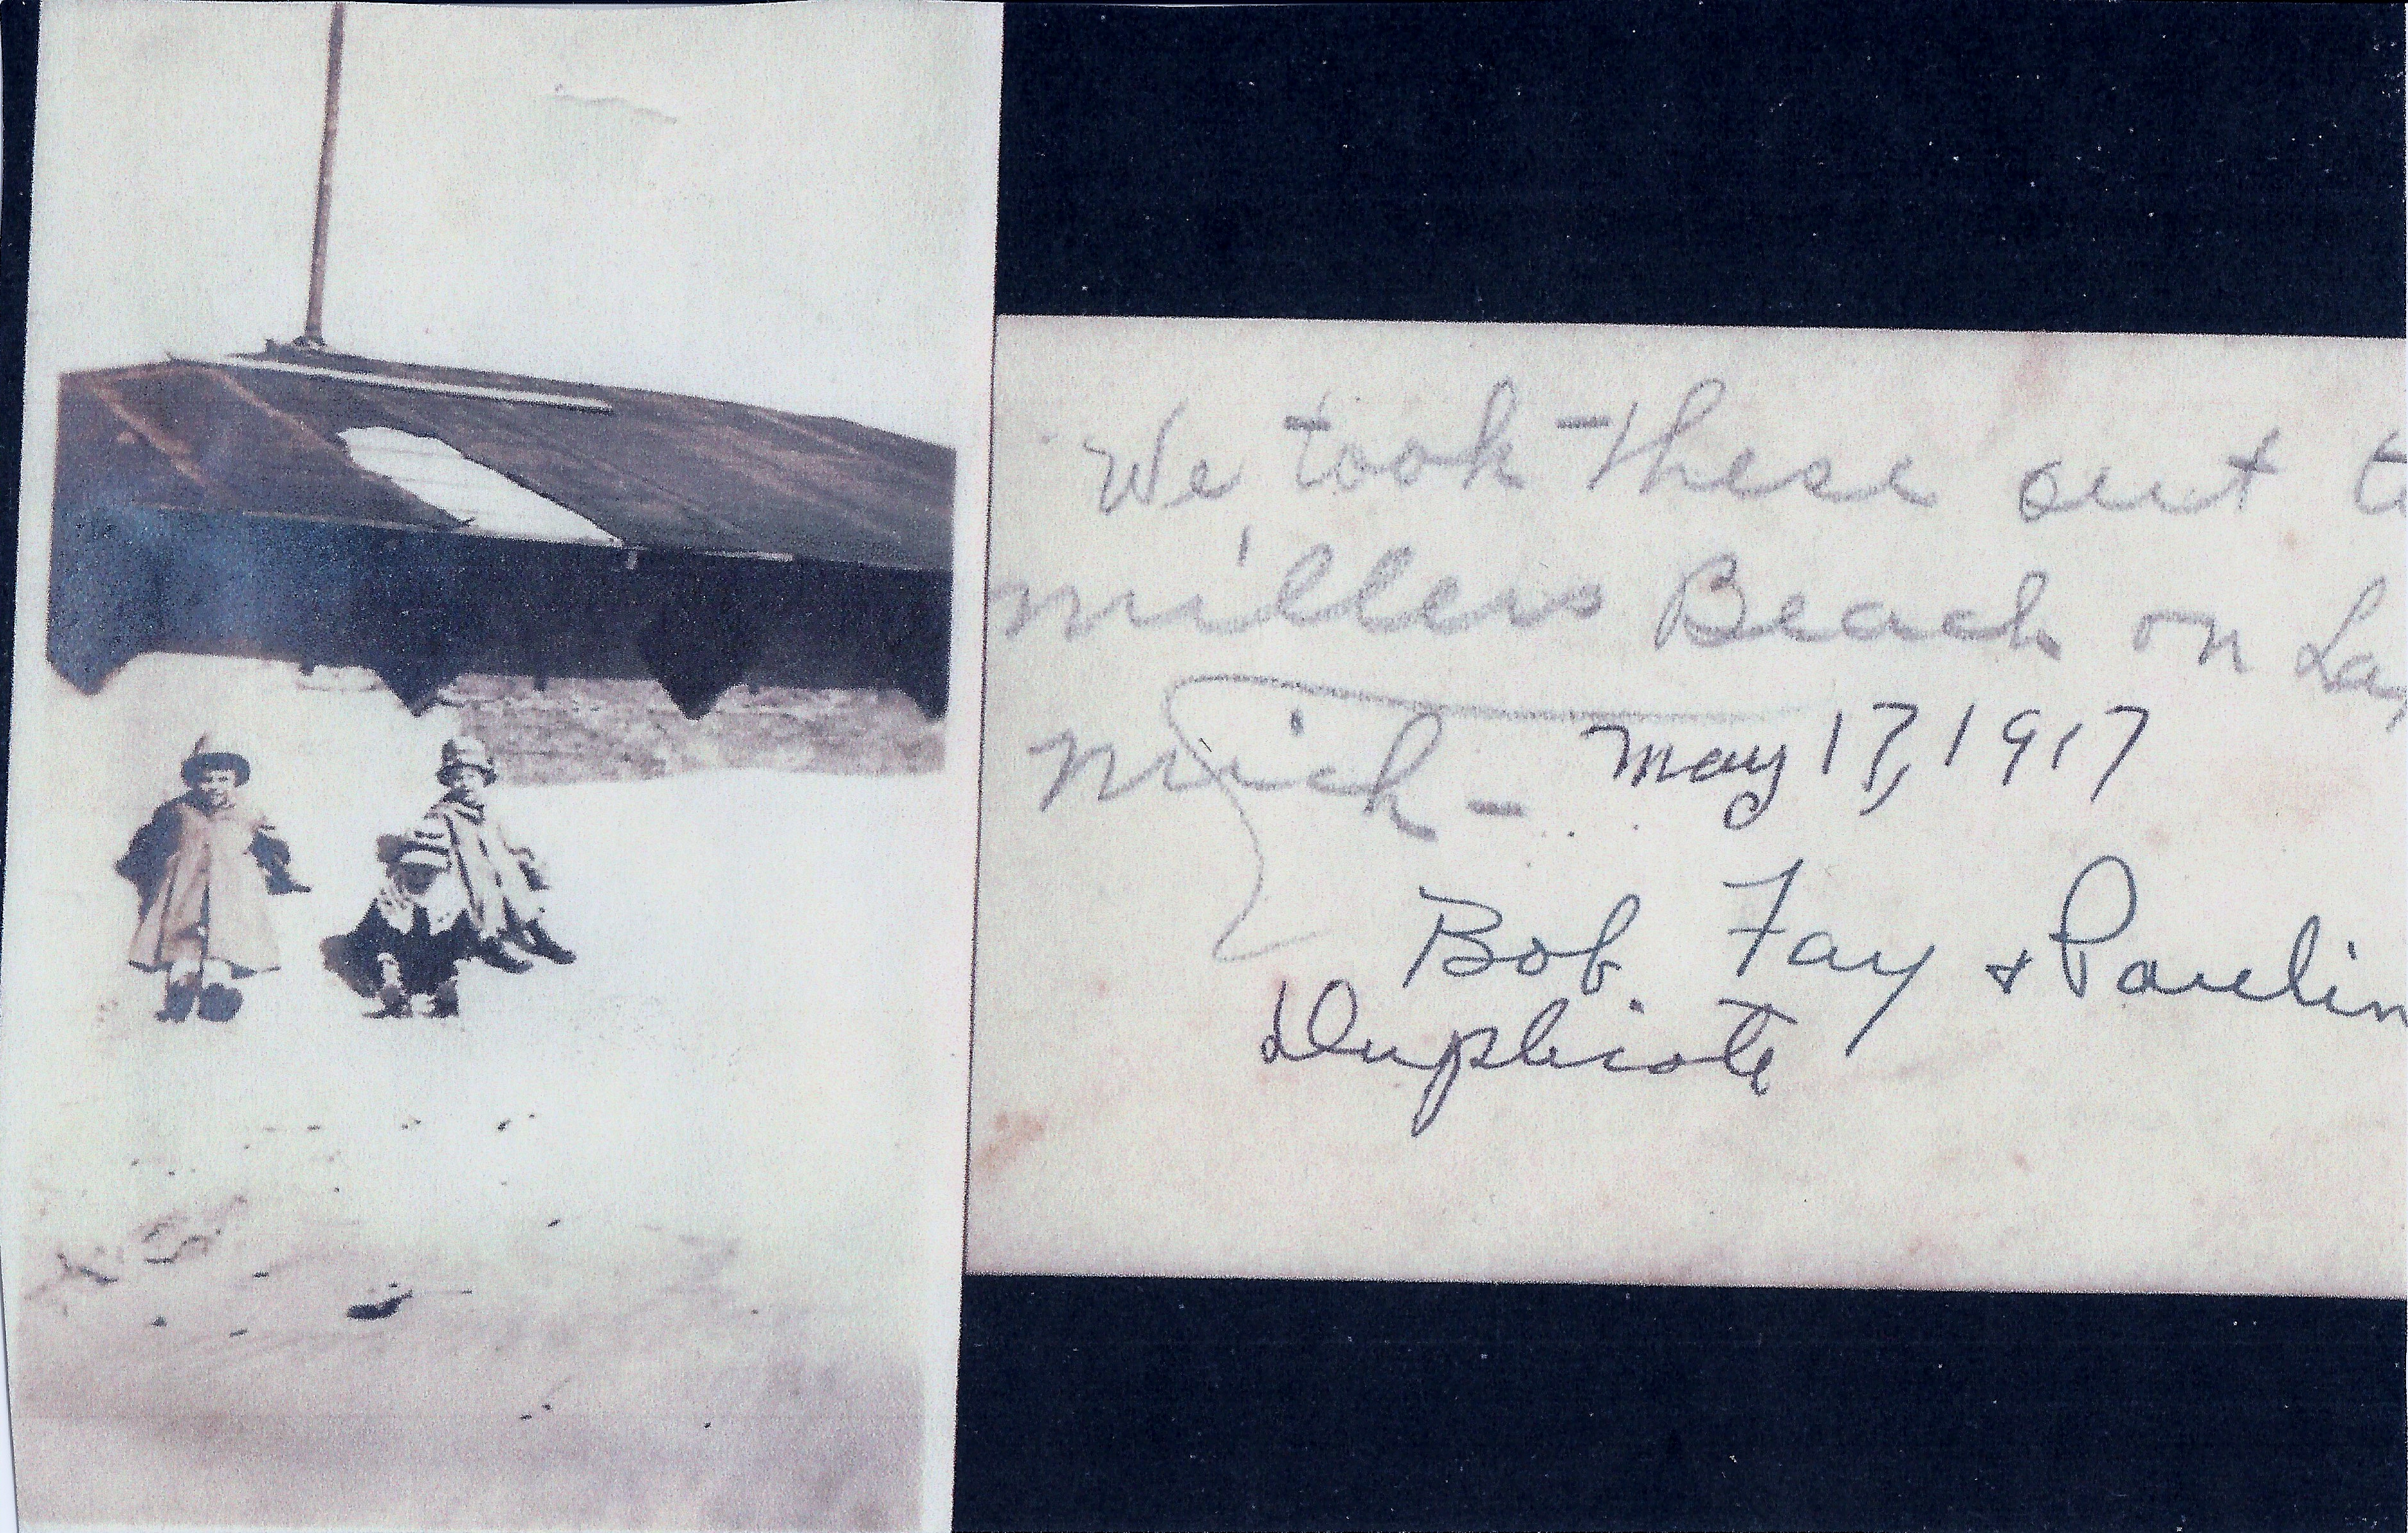 We took these out t
Millers Beach on La
Mich - May 17, 1917
Bob. Fay + Paulin
Duplicate